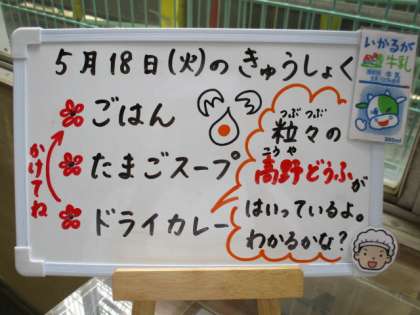 5月18日(火)のきゅうしょく
ごはん
たまごスープ
ドライカレー
かけてね
つぶつぶ
粒々の
こうや
高野どうふが
はいっているよ。
わかるかな?
いかるが
牛乳